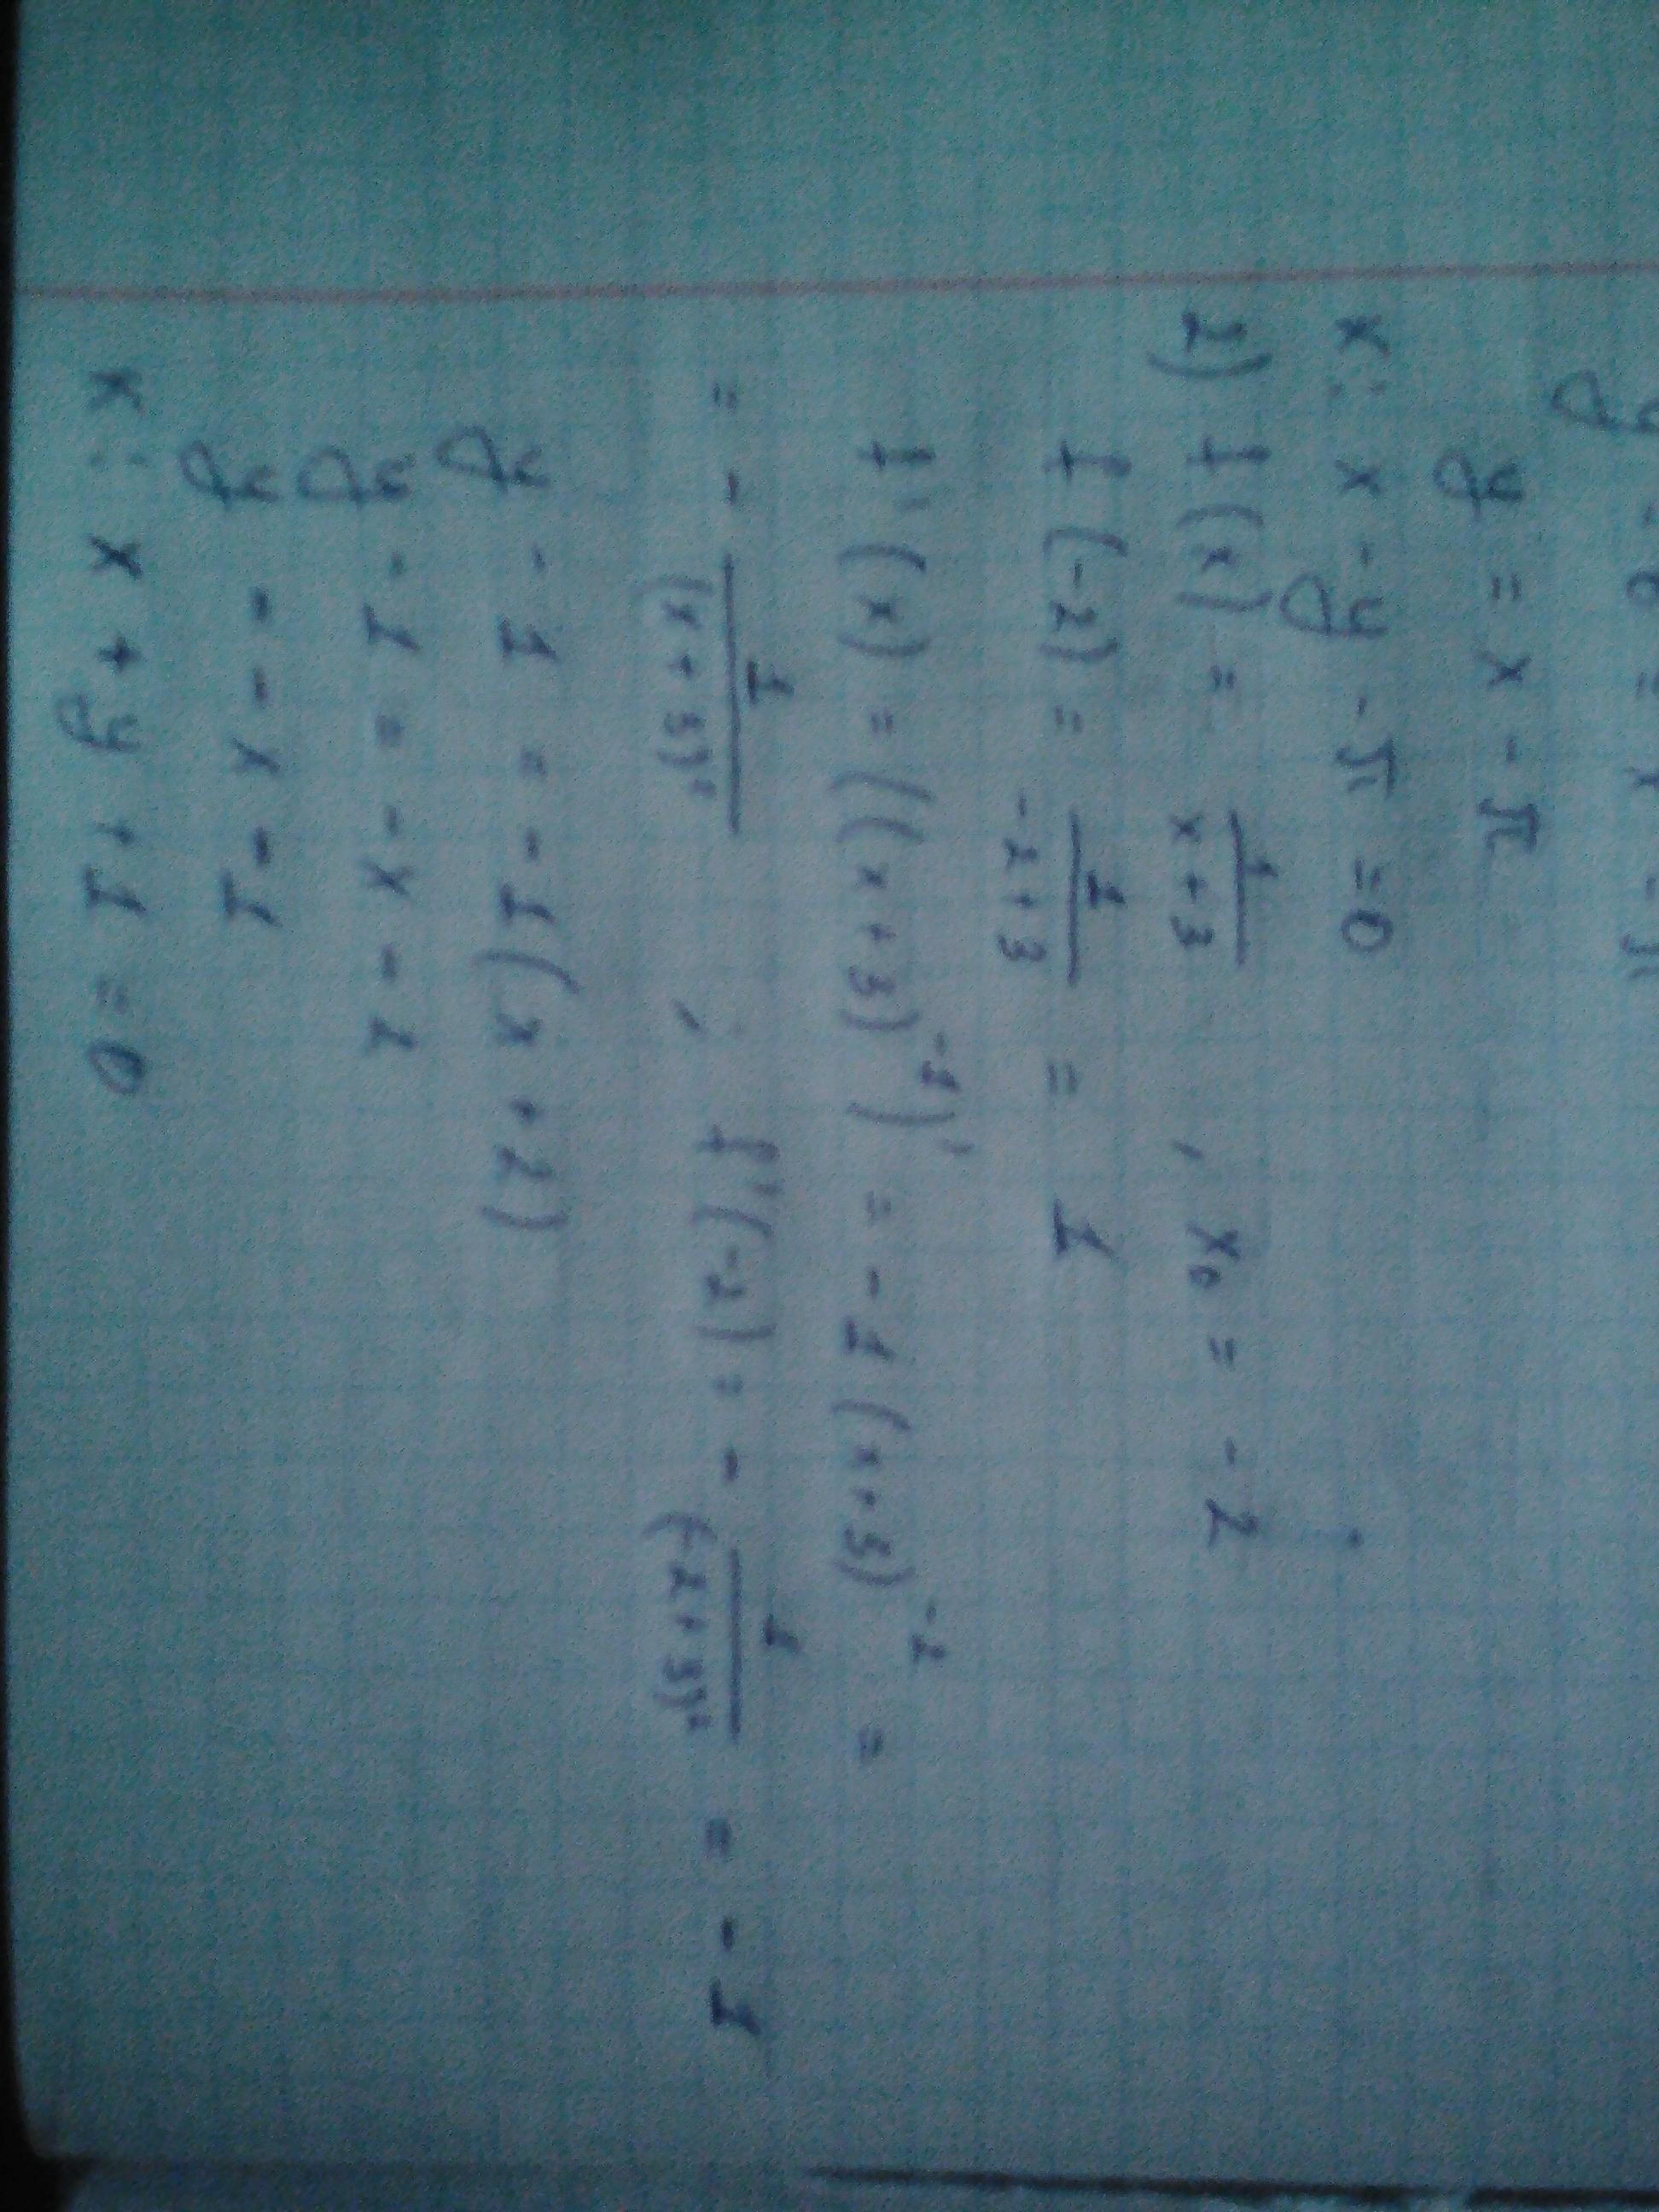 y - 0 = x - π
y = x - π
k: x - y - π = 0
2) f(x) = 1/(x+3) , x₀ = -2
f(-2) = 1/(-2+3) = 1
f'(x) = ((x+3)⁻¹)' = -1(x+3)⁻² =
= - 1/(x+3)² , f'(-2) = - 1/(-2+3)² = -1
y - 1 = -1(x+2)
y - 1 = -x - 2
y = -x - 1
k: x + y + 1 = 0